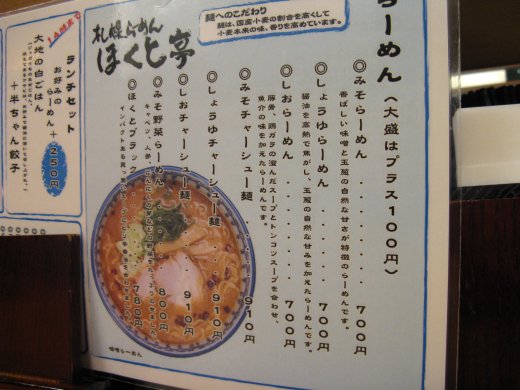 らーめん(大盛はプラス100円)
◎みそらーめん・・・・・・700円
香ばしい味噌と玉葱の自然な甘さが特徴のらーめんです。
◎しょうゆらーめん・・・・・・700円
醤油を高熱で焦がし、玉葱の自然な甘みを加えたらーめんです。
◎しおらーめん・・・・・・700円
豚骨、鶏ガラの澄んだスープとトンコツスープを合わせ、
魚介の味を加えたらーめんです。
◎みそチャーシュー麺・・・・910円
◎しょうゆチャーシュー麺・・910円
◎しおチャーシュー麺・・・・910円
◎みそ野菜らーめん・・・・800円
キャベツ、人参、
◎ほくとブラック・・・・780円
インパクトある真っ黒い
麺へのこだわり
麺は、国産小麦の割合を高くして
小麦本来の味、香りを高めています。
札幌らーめん
ほくと亭
味噌らーめん
ランチセット
お好みの
らーめん+250円
大地の白ごはん
+半ちゃん餃子